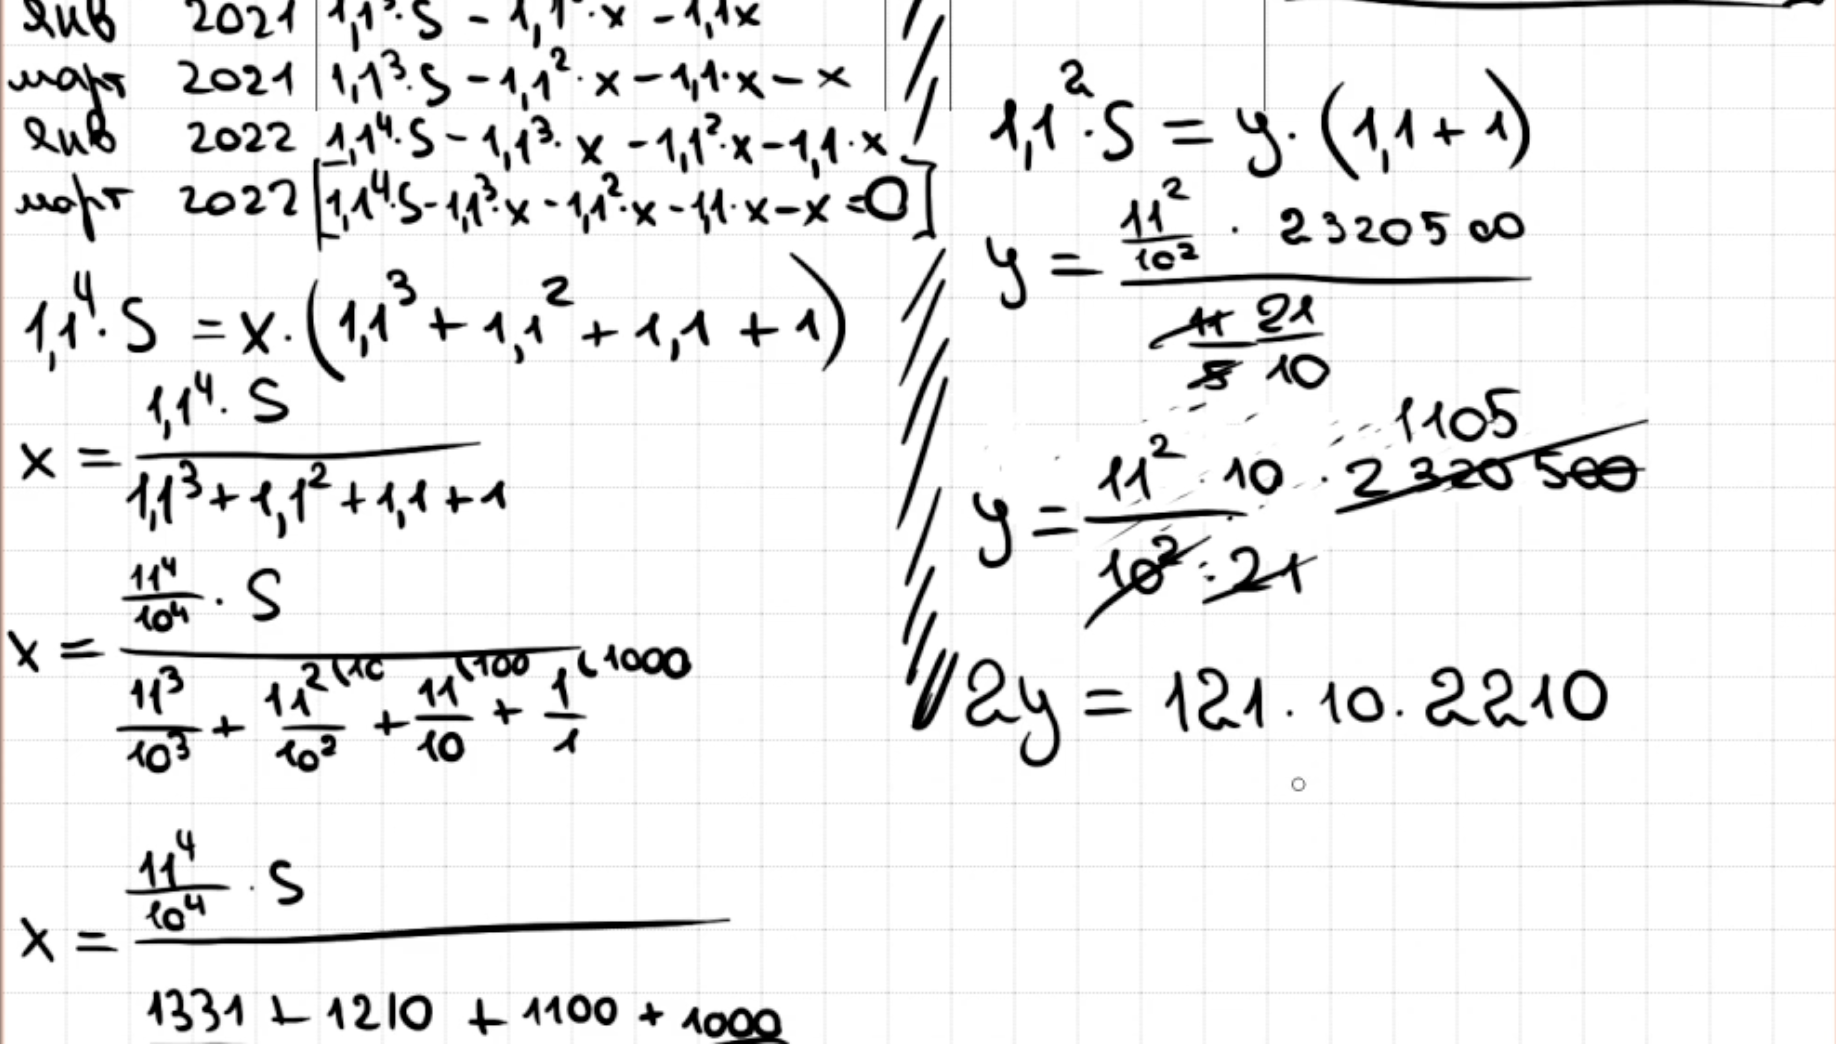 янв 2021 1,1³·S - 1,1²·x - 1,1x
март 2021 1,1³·S - 1,1²·x - 1,1·x - x
янв 2022 1,1⁴·S - 1,1³·x - 1,1²·x - 1,1·x
март 2022 [1,1⁴S - 1,1³·x - 1,1²·x - 1,1·x - x = 0]
1,1⁴·S = x·(1,1³ + 1,1² + 1,1 + 1)
x =
1,1⁴·S
1,1³ + 1,1² + 1,1 + 1
x =
11⁴/10⁴ · S
11³/10³ + 11²/10² (10 + 11/10 (100 + 1/1 (1000
x =
11⁴/10⁴ · S
1331 + 1210 + 1100 + 1000
1,1²·S = y·(1,1 + 1)
y =
11²/10² · 2320500
11/5 21/10
1105
y =
11² · 10 · 2320500
10² · 21
2y = 121·10·2210